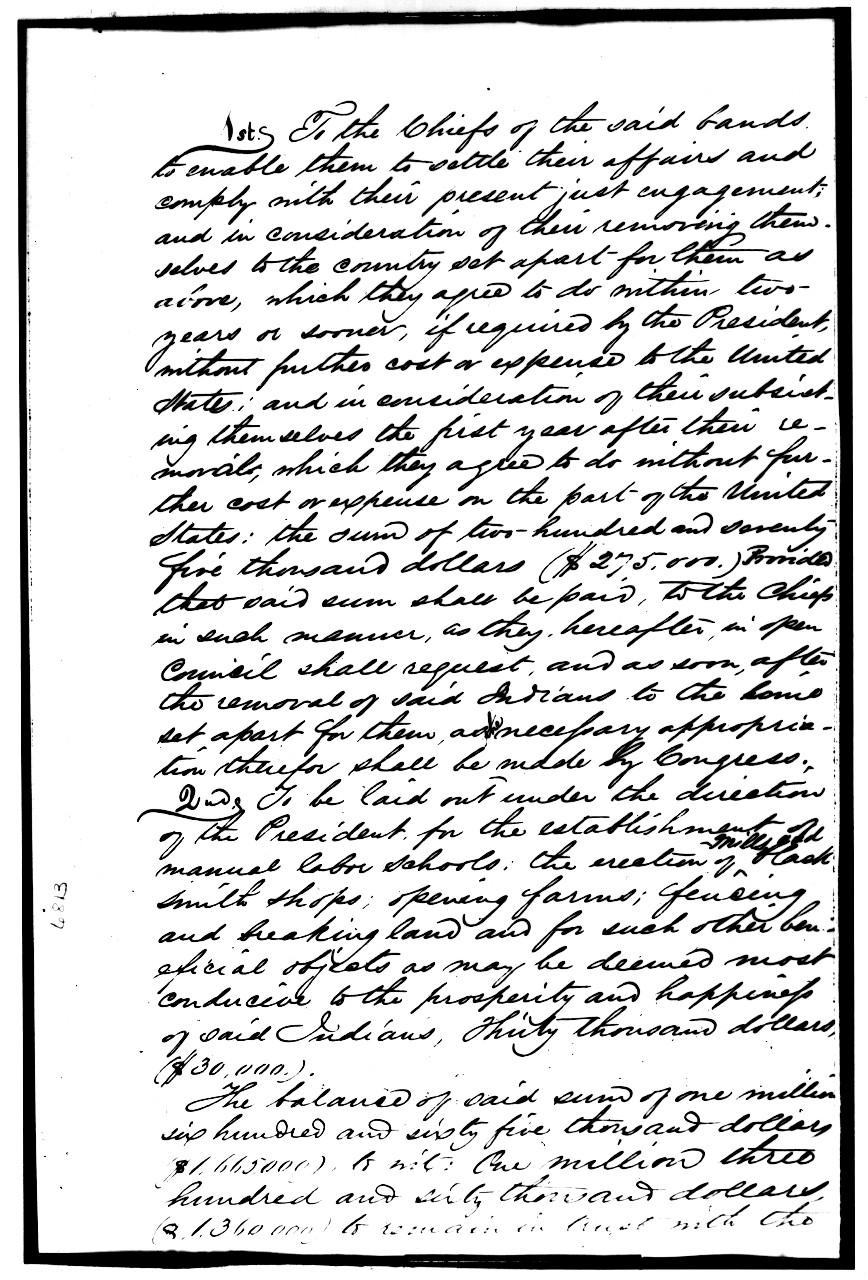 1st. To the Chiefs of the said bands.
to enable them to settle their affairs and
comply with their present just engagement;
and in consideration of their removing them-
selves to the country set apart for them as
above, which they agree to do within two
years or sooner, if required by the President,
without further cost or expense to the United
States; and in consideration of their subsist-
ing themselves the first year after their re-
movals, which they agree to do without fur-
ther cost or expense on the part of the United
States: the sum of two hundred and seventy
five thousand dollars ($275.000.) Provided
that said sum shall be paid, to the Chiefs
in such manner, as they, hereafter, in open
Council shall request, and as soon, after
the removal of said Indians to the home
set apart for them, as necessary appropria-
tion therefor shall be made by Congress.
2nd, To be laid out under the direction
of the President for the establishment of
mills and
manual labor schools; the erection of black-
smith shops; opening farms; fencing
and breaking land and for such other ben-
eficial objects as may be deemed most
conducive to the prosperity and happiness
of said Indians, thirty thousand dollars,
($30,000.).
The balance of said sum of one million
six hundred and sixty five thousand dollars
($1.665000) to wit: One million three
hundred and sixty thousand dollars,
($1.360000) to remain in trust with the
6813